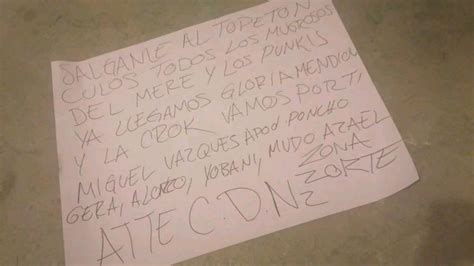 SALGANLE AL TOPETON
CULOS TODOS LOS MUGROSOS
DEL MERE Y LOS PUNKIS
YA LLEGAMOS GLORIA MENDIOLA
Y LA CROK VAMOS POR TI,
MIGUEL VAZQUES APOD PONCHO
GERA, ALONZO, YOBANI, MUDO AZAEL
ATTE C.D.N ZONA
Z ZORTE